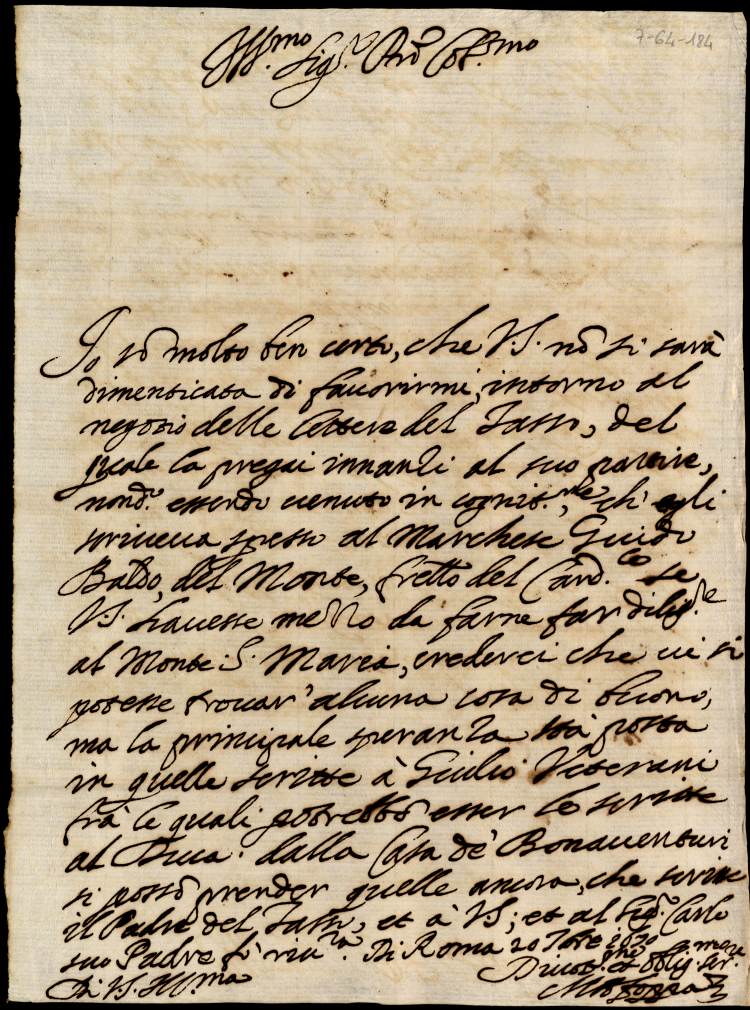 7-64-184
Ill.mo Sig.r Pro͂ Col.mo
Io sò molto ben certo, che V.S. nõ si sarà
dimenticata di fauorirmi, intorno al
negozio delle lettere del Tasso, del
quale la pregai innanzi al suo partire,
nond.o essendo uenuto in cognit.ne, ch'egli
scriueua spesso al Marchese Guido
Baldo, del Monte, frello del Card.le se
V.S. hauesse mezzo da farne far dilig.e
al Monte S. Maria, crederei che ui si
potesse trouar' alcuna cosa di buono,
ma la principale speranza stà posta
in quelle scritte à Giulio Veterani
frà le quali potrebbõ esser le scritte
al Duca. dalla Casa de' Bonauenturi
si possõ prender quelle ancora, che scrisse
il Padre del Tasso, et à V.S; et al Sig.r Carlo
suo Padre fò riu.za. Di Roma 20 7bre 1630
Di V.S. Ill.ma
Diuot.mo et oblig.mo ser.re